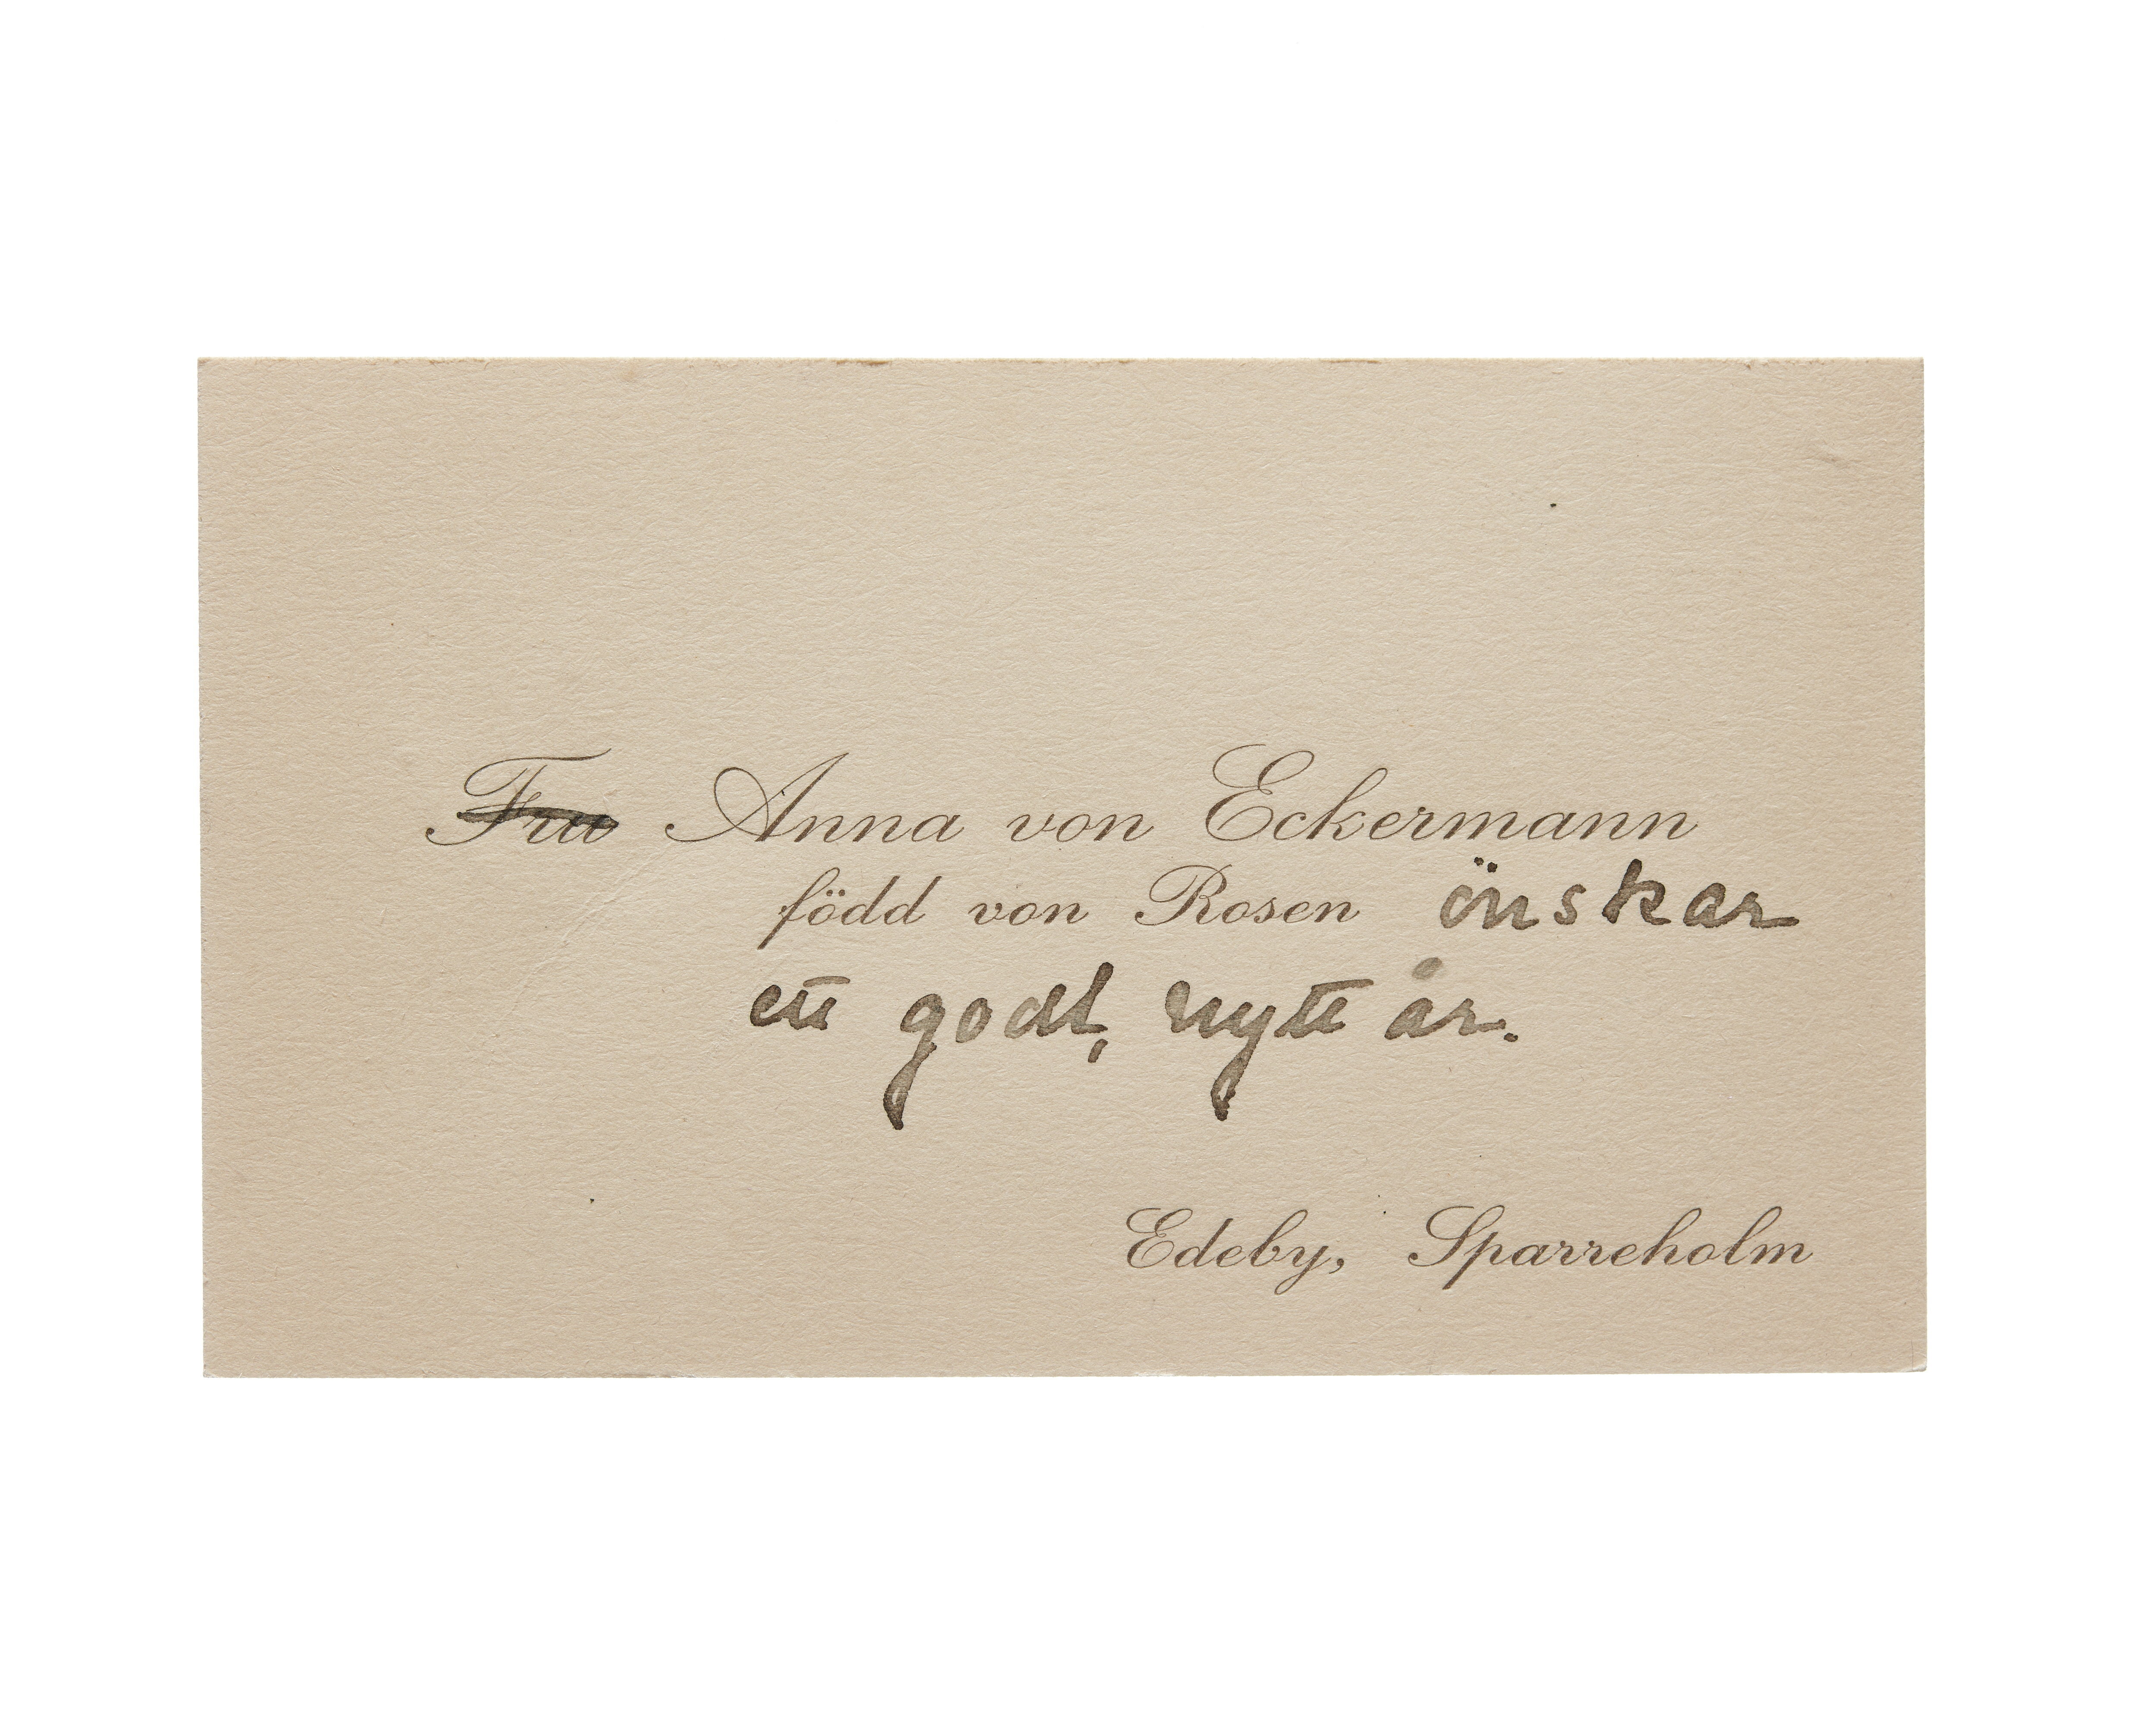 Fru Anna von Eckermann
född von Rosen önskar
ett godt, nytt år.
Edeby, Sparreholm